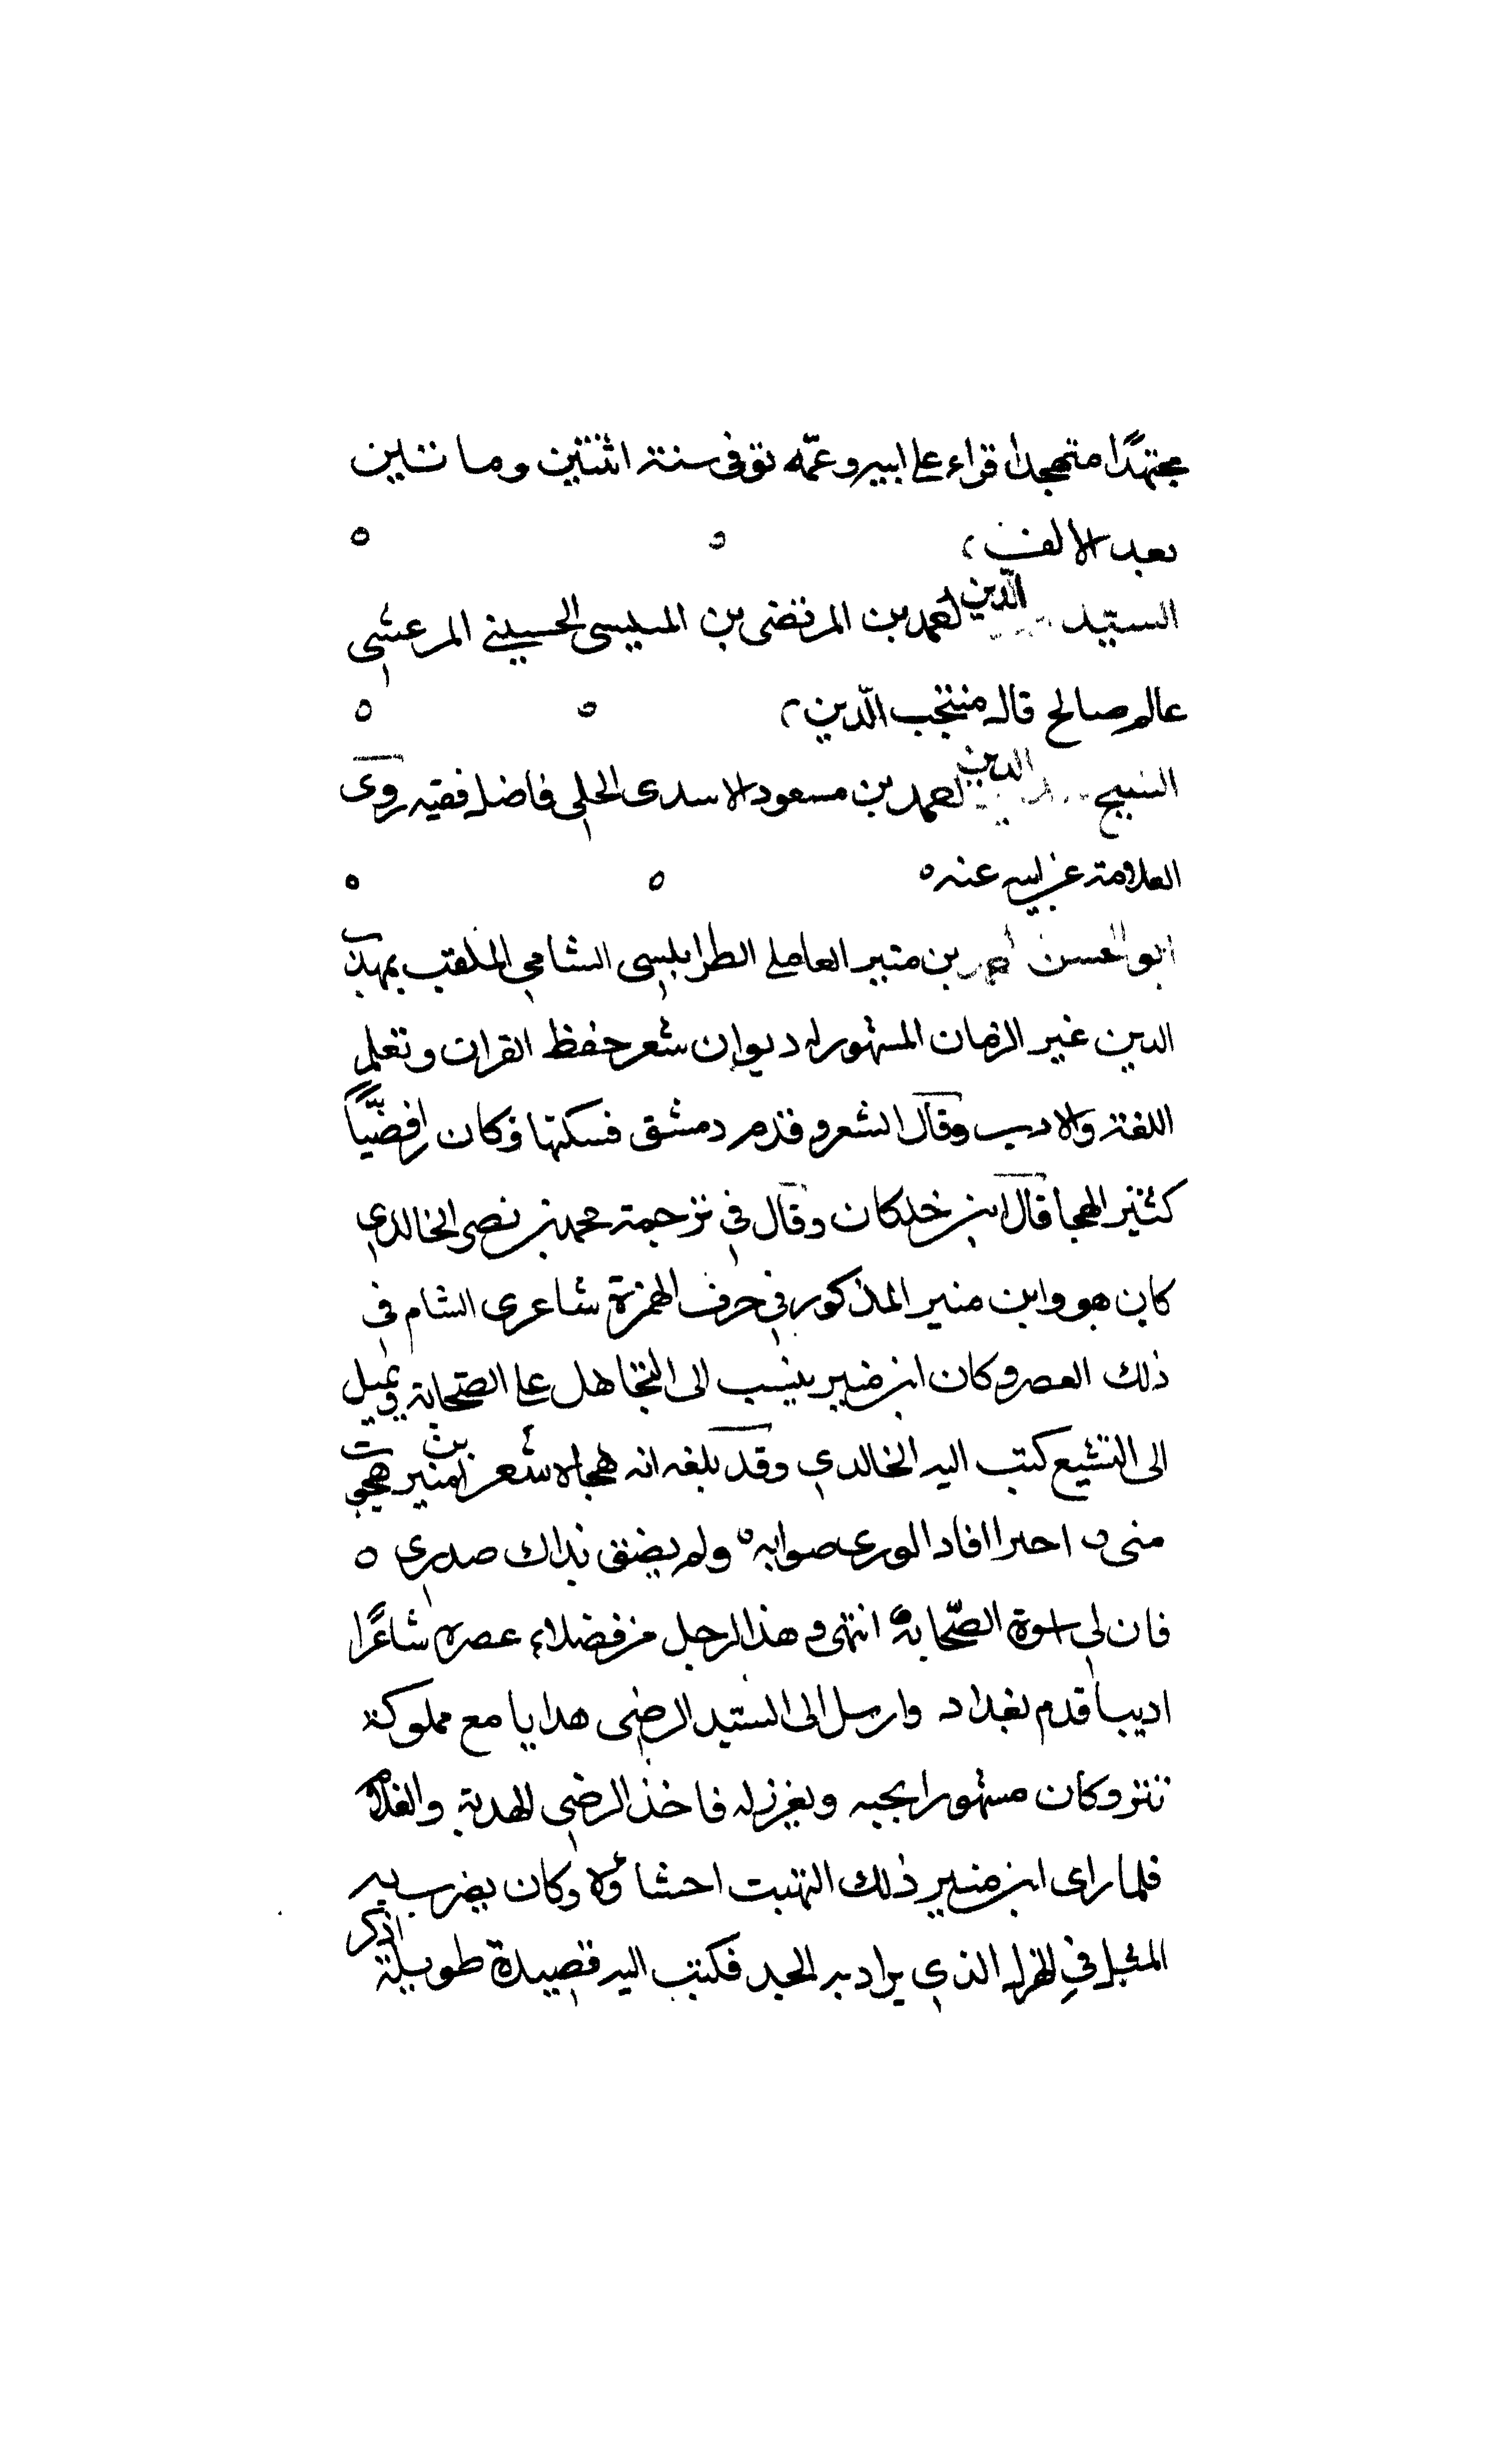 مجتهدًا متهجدا قراء على ابيه وعمّه توفى سنة اثنتين وماتين
بعد الالف
السيد الدين احمد بن المرتضى بن المسيسى الحسينى المرعشى
عالم صالح قاله منتجب الدين
الشيخ الدين احمد بن مسعود الاسدى الحلى فاضل فقيه روى
العلامة عن ابيه عنه
ابو الحسن احمد بن منير العاملى الطرابلسى الشامى الملقب بمهذب
الدين عين الزمان المشهور له ديوان شعر حفظ القران وتعلم
اللغة والادب وقال الشعر وقدم دمشق فسكنها وكان رافضيّاً
كثير الهجا قال ابن خلكان وقال فى ترجمة محمد بن نصر الخالدي
كان هو وابن منير المذكور فى حرف الهمزة شاعرى الشام فى
ذلك العصر وكان ابن منير ينسب الى التحامل على الصّحابة ويميل
الى التشيع كتب اليه الخالدي وقد بلغه انه هجاه شعر ابن منير هجوت
منى حبرا افاد الورى صوابه ولم يضق بذاك صدرى
فان لى اسوة الصّحابة انتهى و هذا الرجل من فضلاء عصره شاعرًا
اديبا قدم بغداد وارسل الى السيد الرضى هدايا مع مملوكه
تتر وكان مشهورا بحبه وتغزله فاخذ الرضى الهدية والغلام
فلما راى ابن منير ذلك التهبت احشاؤه وكان يضرب به
المثل فى الهزل الذي يراد به الجد فكتب اليه قصيدة طويلة اذكر